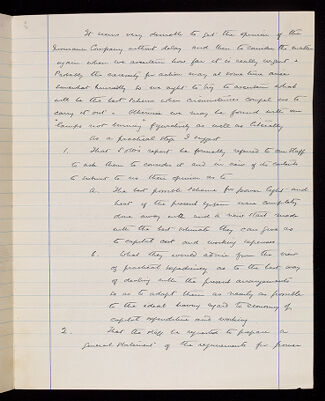 It seems very desirable to get the opinion of the
Insurance Company without delay and then to consider the matter
again when we ascertain how far it is really urgent &
Probably the necessity for action may at some time arise
somewhat hurriedly so we ought to try to ascertain what
will be the best scheme when circumstances compel us to
carry it out & Otherwise we may be found with our
"lamps not burning" figuratively as well as literally
As a practical step I suggest
1. That Potts's report be formally referred to our staff
to ask them to consider it and in view of its contents
to submit to us their opinion as to
a. The best possible scheme for power light and
heat if the present system were completely
done away with and a new start made
with the best estimate they can give as
to capital cost and working expenses
b. What they would advise from the view
of practical expediency as to the best way
of dealing with the present arrangements
so as to adapt them as nearly as possible
to the ideal having regard to economy of
capital expenditure and working
2. That the staff be requested to prepare a
general statement of the requirements for power